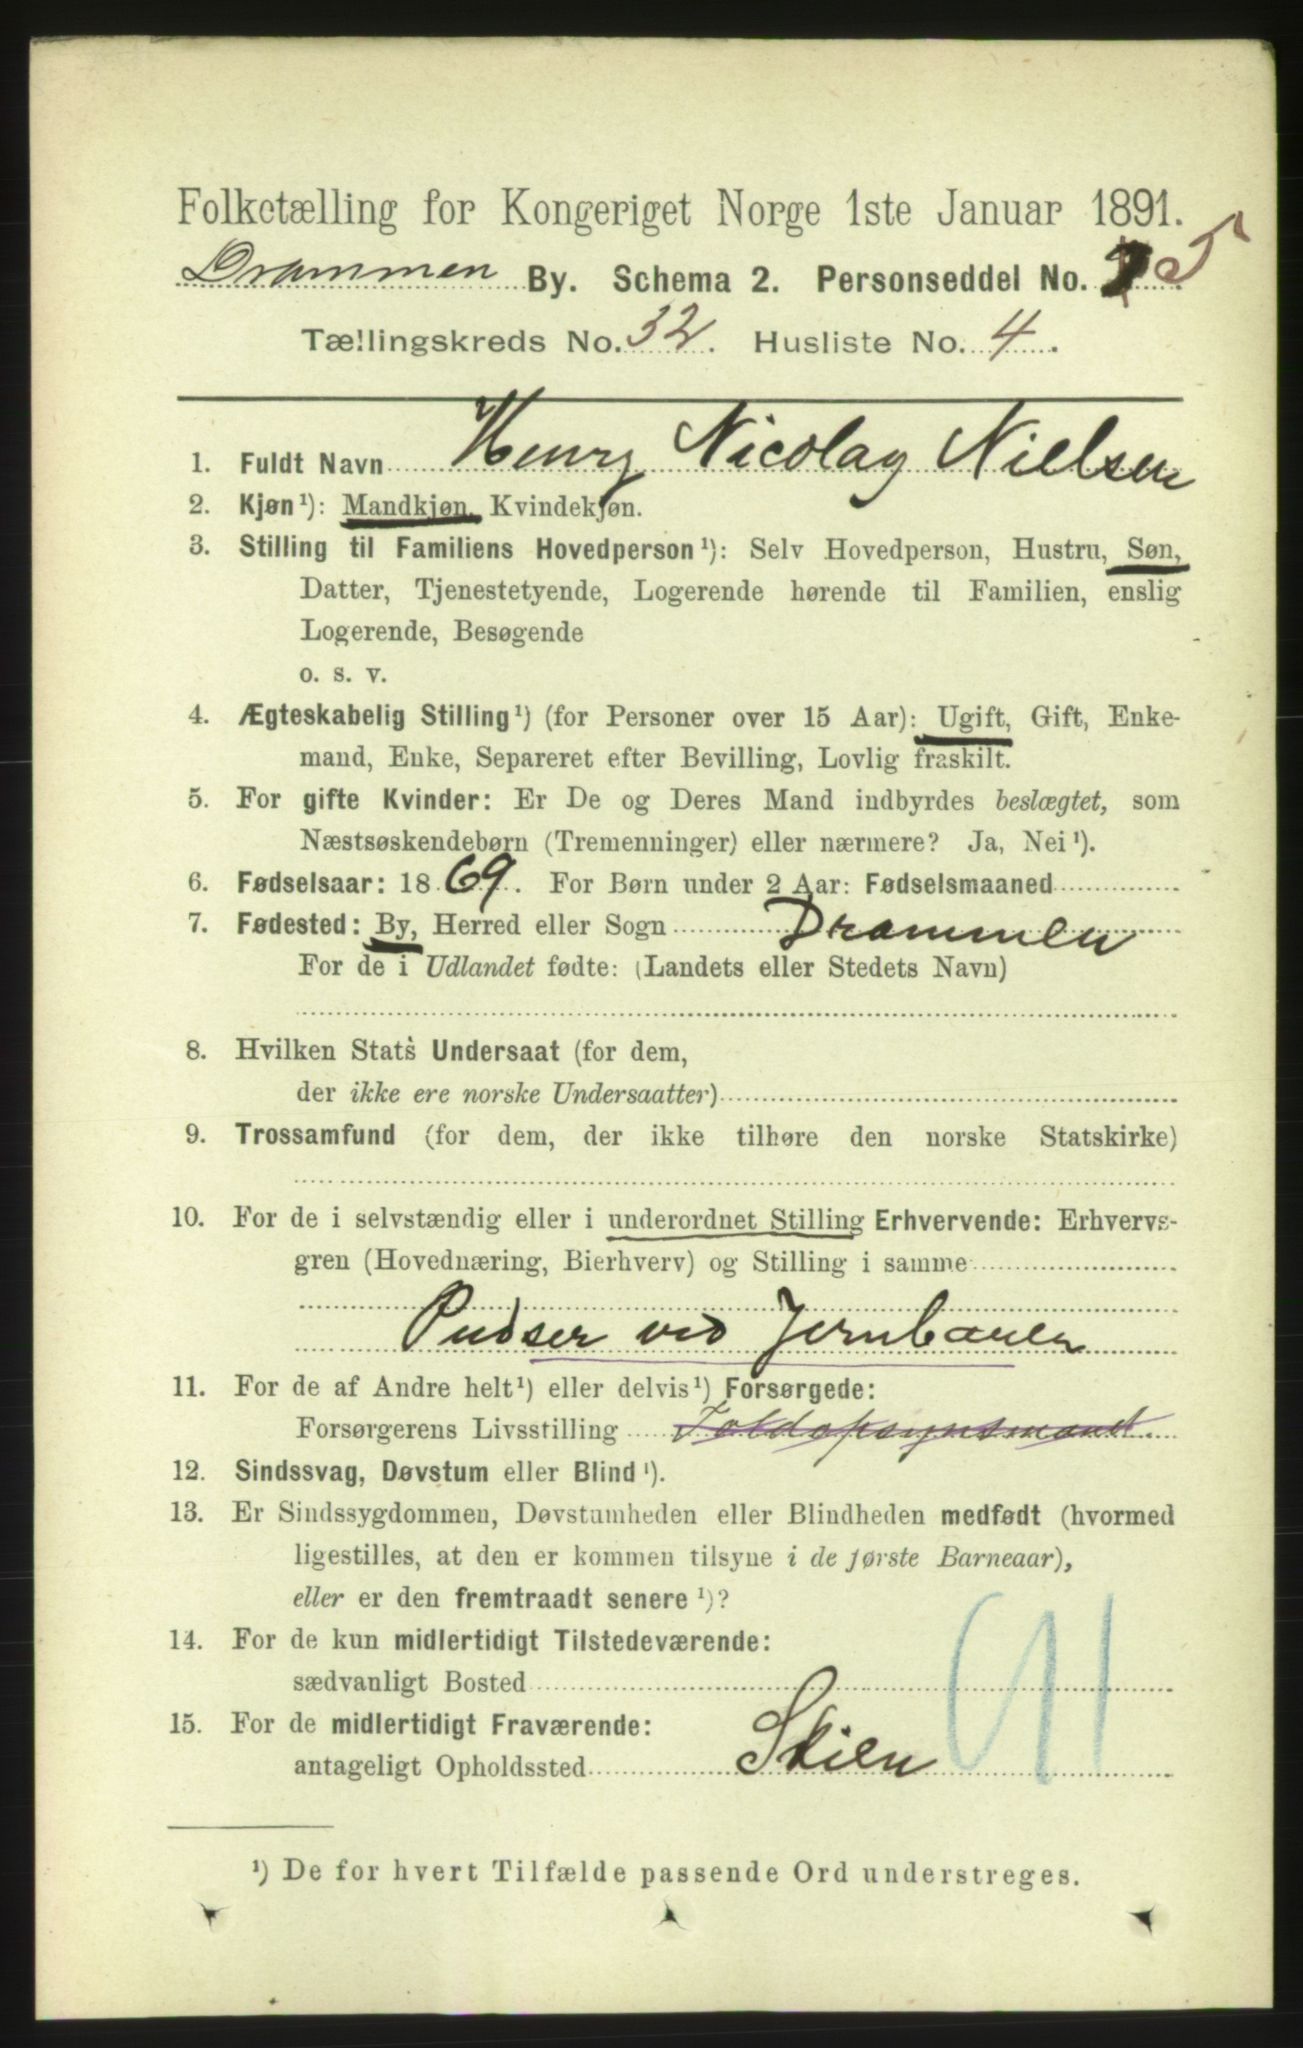 Folketælling for Kongeriget Norge 1ste Januar 1891.
Drammen By. Schema 2. Personseddel No. 5
Tællingskreds No. 32. Husliste No. 4.
1. Fuldt Navn Henry Nicolay Nielsen
2. Kjøn¹): Mandkjøn, Kvindekjøn.
3. Stilling til Familiens Hovedperson¹): Selv Hovedperson, Hustru, Søn,
Datter, Tjenestetyende, Logerende hørende til Familien, enslig
Logerende, Besøgende
o. s. v.
4. Ægteskabelig Stilling¹) (for Personer over 15 Aar): Ugift, Gift, Enke-
mand, Enke, Separeret efter Bevilling, Lovlig fraskilt.
5. For gifte Kvinder: Er De og Deres Mand indbyrdes beslægtet, som
Næstsøskendebørn (Tremenninger) eller nærmere? Ja, Nei¹).
6. Fødselsaar: 1869. For Børn under 2 Aar: Fødselsmaaned
7. Fødested: By, Herred eller Sogn Drammen
For de i Udlandet fødte: (Landets eller Stedets Navn)
8. Hvilken Stats Undersaat (for dem,
der ikke ere norske Undersaatter)
9. Trossamfund (for dem, der ikke tilhøre den norske Statskirke)
10. For de i selvstændig eller i underordnet Stilling Erhvervende: Erhvervs-
gren (Hovednæring, Bierhverv) og Stilling i samme
Pudser ved Jernbanen
11. For de af Andre helt¹) eller delvis¹) Forsørgede:
Forsørgerens Livsstilling Toldopsynsmand.
12. Sindssvag, Døvstum eller Blind¹).
13. Er Sindssygdommen, Døvstumheden eller Blindheden medfødt (hvormed
ligestilles, at den er kommen tilsyne i de første Barneaar),
eller er den fremtraadt senere¹)?
14. For de kun midlertidigt Tilstedeværende:
sædvanligt Bosted
15. For de midlertidigt Fraværende:
antageligt Opholdssted Skien
¹) De for hvert Tilfælde passende Ord understreges.